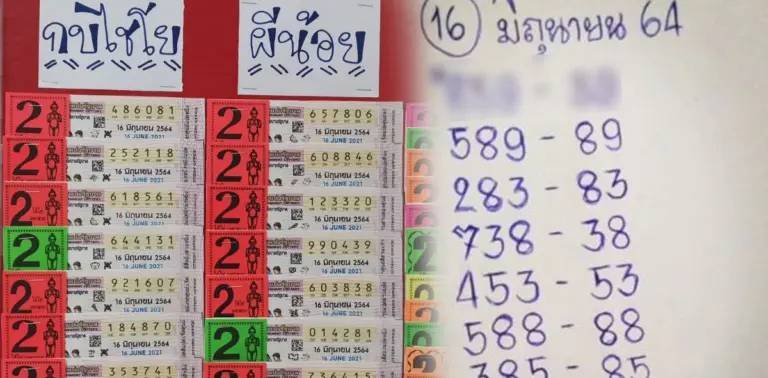 กบไชโย
ผีน้อย
2 486081
16 มิถุนายน 2564
16 JUNE 2021
2 252118
16 มิถุนายน 2564
16 JUNE 2021
2 618561
16 มิถุนายน 2564
16 JUNE 2021
2 644131
16 มิถุนายน 2564
16 JUNE 2021
2 921607
16 มิถุนายน 2564
16 JUNE 2021
2 184870
16 มิถุนายน 2564
16 JUNE 2021
2 353741
2 657806
16 มิถุนายน 2564
16 JUNE 2021
2 608846
16 มิถุนายน 2564
16 JUNE 2021
2 123320
16 มิถุนายน 2564
16 JUNE 2021
2 990439
16 มิถุนายน 2564
16 JUNE 2021
2 603838
16 มิถุนายน 2564
16 JUNE 2021
2 014281
16 มิถุนายน 2564
16 JUNE 2021
2
16 มิถุนายน 64
589 - 89
283 - 83
738 - 38
453 - 53
588 - 88
385 - 85